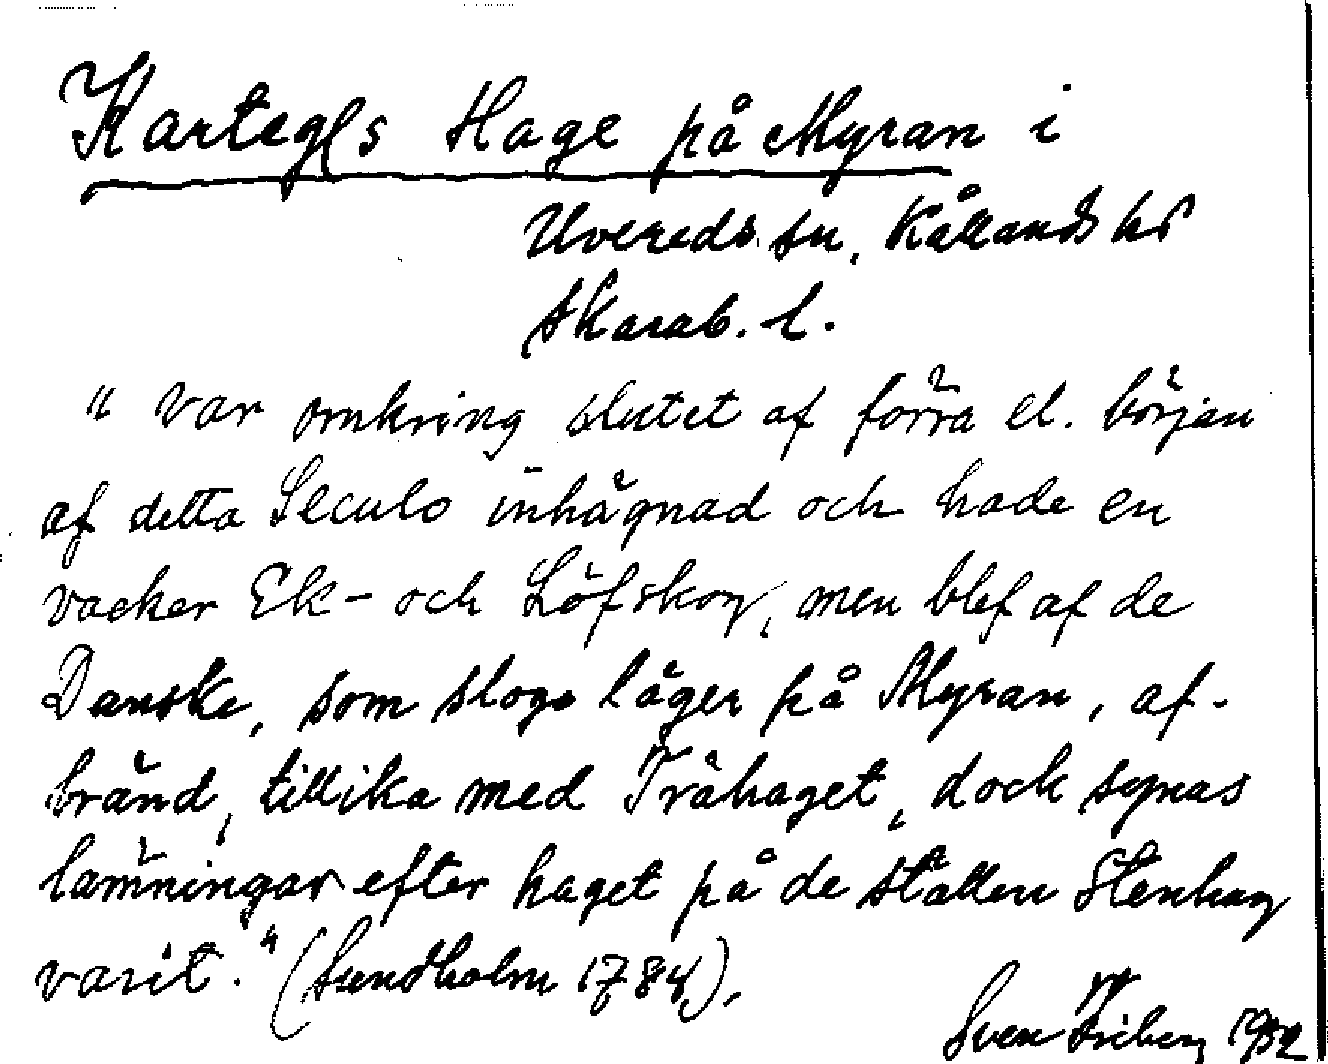 Kartegls Hage på Myran i
Uvereds sn, Kållands hd
Skarab. l.
"var omkring slutet af förra el. början
af detta Seculo inhägnad och hade en
vacker Ek- och Löfskog, men blef af de
Danske, som slogo läger på Myran, af-
bränd, tillika med Trähaget, dock synas
lämningar efter haget på de ställen Stenhag
varit." (Sundholm 1784).
Sven Friberg 1952